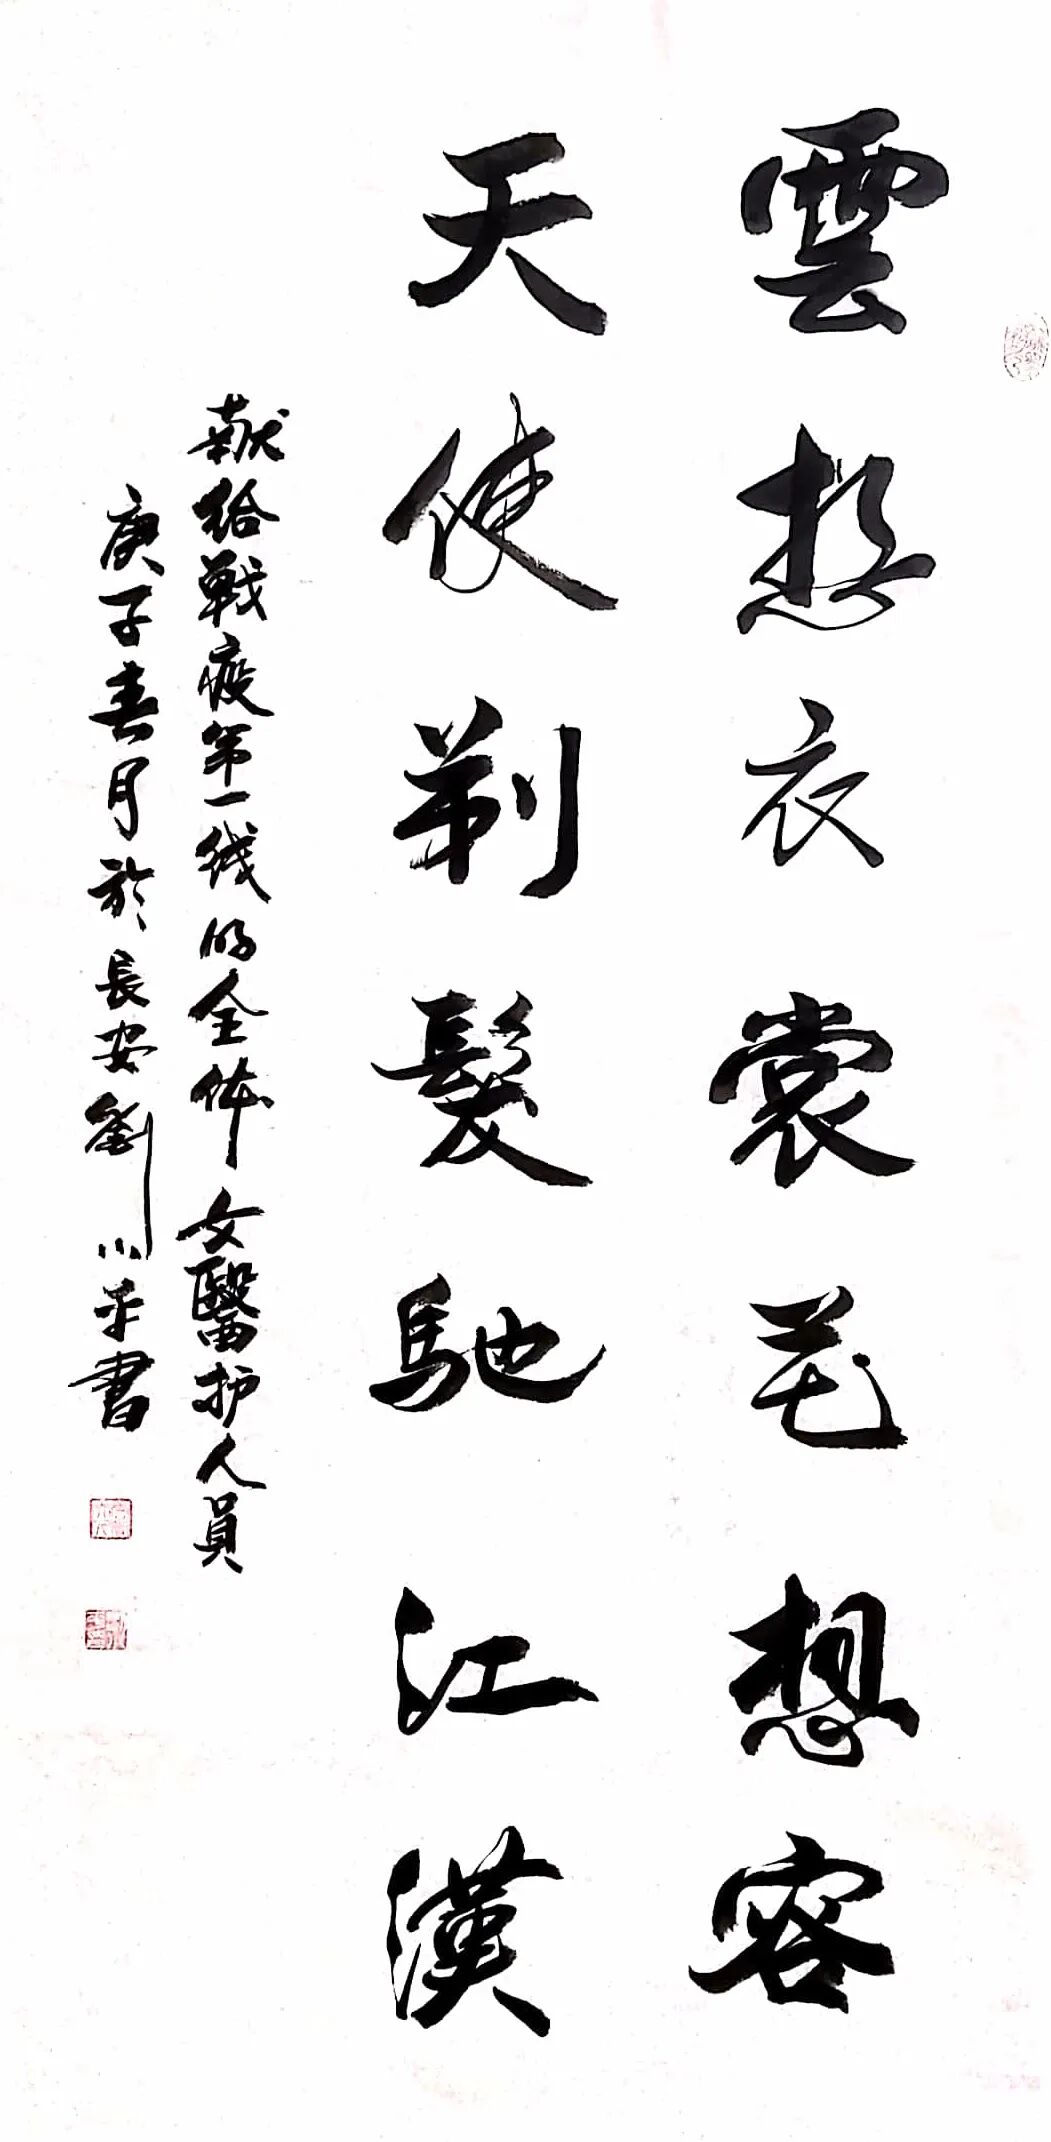 雲想衣裳花想容
天使剃髮馳江漢
献给戰疫第一线的全体女醫护人員
庚子春月於長安劉小平書